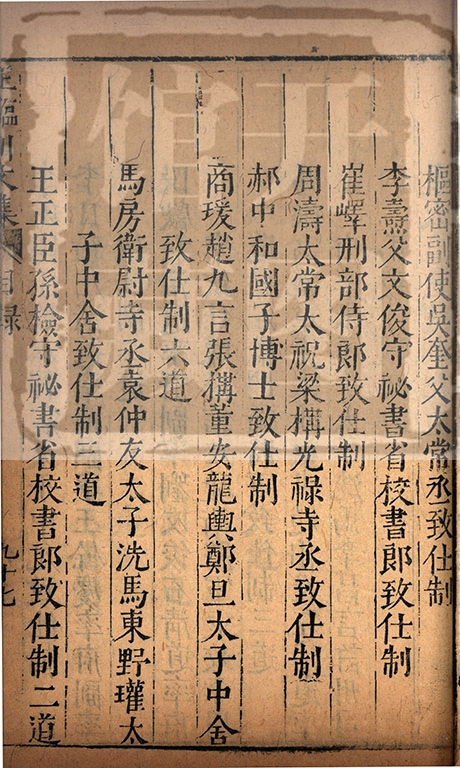 樞密副使吳奎父太常丞致仕制
李熹父文俊守祕書省校書郎致仕制
崔嶧刑部侍郎致仕制
周濤太常太祝梁構光祿寺丞致仕制
郝中和國子博士致仕制
商瑗趙九言張搆董安龍輿鄭旦太子中舍
致仕制六道
馬房衛尉寺丞袁仲友太子洗馬東野瓘太
子中舍致仕制三道
王正臣孫檢守祕書省校書郎致仕制二道
王臨川文集 目録 九十七